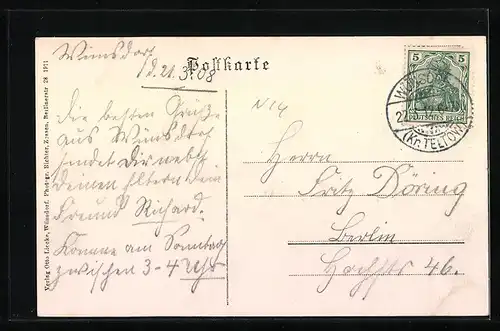 Wünsdorf
d. 21. 3. 08
Postkarte
Die besten Grüße
aus Wünsdorf
sendet Dir nebst
Deinen Eltern Dein
Freund Richard.
Komme am Sonntag
zwischen 3-4 Uhr
5 5
DEUTSCHES REICH
(Kr. TELTOW)
Herrn
Fritz Döring
Berlin
46.
Verlag Otto Liecke, Wünsdorf. Photogr. Richter, Zossen, Berlinerstr. 28 1911